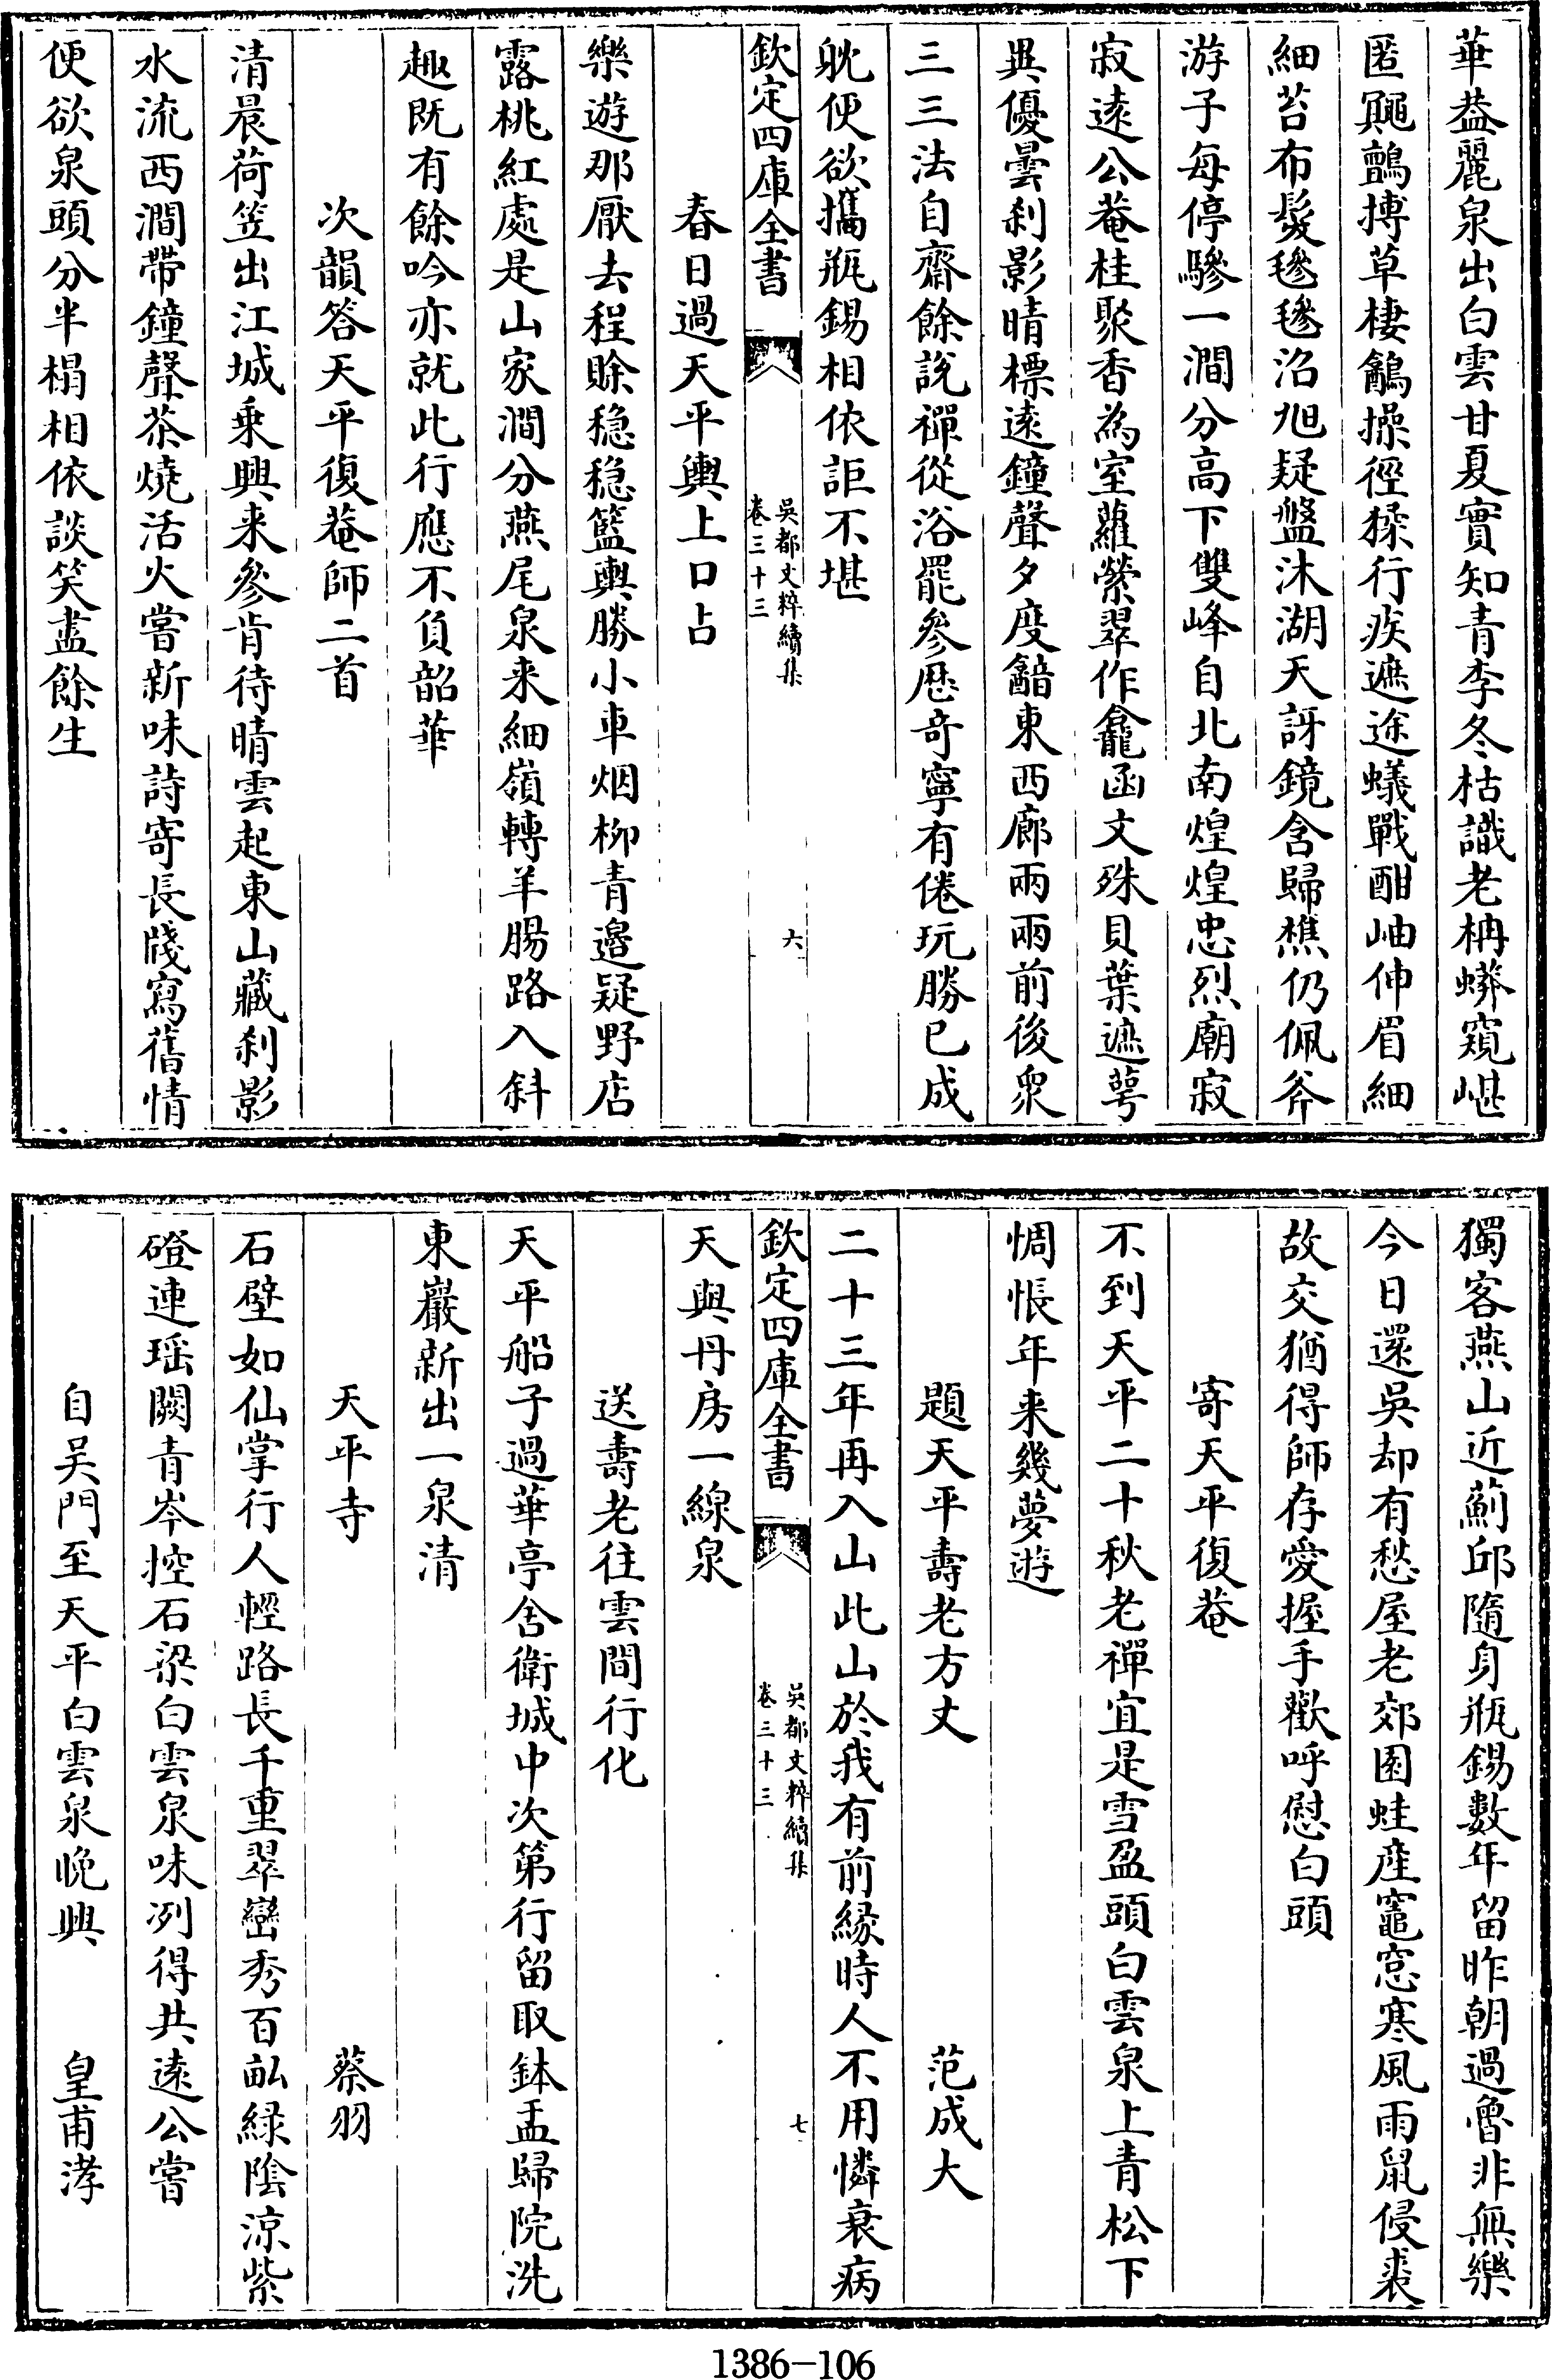 華葢麗泉出白雲甘夏實知青李冬枯識老柟蟒窺嵁
匿鼴鸇搏草棲鷊操徑猱行疾遮途蟻戰酣岫伸眉細
細苔布髮毿毿沿旭疑盤沐湖天訝鏡含歸樵仍佩斧
游子每停驂一澗分高下雙峰自北南煌煌忠烈廟寂
寂遠公菴桂聚香為室蘿縈翠作龕函文殊貝葉遮萼
異優曇刹影晴標遠鐘聲夕度䤃東西廊兩兩前後衆
三三法自齋餘說禪從浴罷參歷奇寧有倦玩勝已成
躭便欲攜瓶錫相依詎不堪
欽定四庫全書
吳都文粹續集
卷三十三
六
春日過天平輿上口占
樂遊那厭去程賒穩穩籃輿勝小車烟柳青邉疑野店
露桃紅處是山家澗分燕尾泉来細嶺轉羊腸路入斜
趣既有餘吟亦就此行應不負韶華
次韻答天平復菴師二首
清晨荷笠出江城乗興来參肯待晴雲起東山藏刹影
水流西澗帶鐘聲茶燒活火嘗新味詩寄長牋寫舊情
便欲泉頭分半榻相依談笑盡餘生
獨客燕山近薊邱隨身瓶錫數年留昨朝過魯非無樂
今日還吳却有愁屋老郊園蛙産竈窓寒風雨鼠侵裘
故交猶得師存愛握手歡呼慰白頭
寄天平復菴
不到天平二十秋老禪宜是雪盈頭白雲泉上青松下
惆悵年来幾夢遊
題天平壽老方丈 范成大
二十三年再入山此山於我有前緣時人不用憐衰病
欽定四庫全書
吳都文粹續集
卷三十三
七
天與丹房一線泉
送壽老往雲間行化
天平船子過華亭舍衛城中次第行留取鉢盂歸院洗
東巖新出一泉清
天平寺 蔡羽
石壁如仙掌行人輕路長千重翠巒秀百畝緑陰涼紫
磴連瑶闕青岑控石梁白雲泉味冽得共遠公嘗
自吴門至天平白雲泉晚興 皇甫涍
1386-106